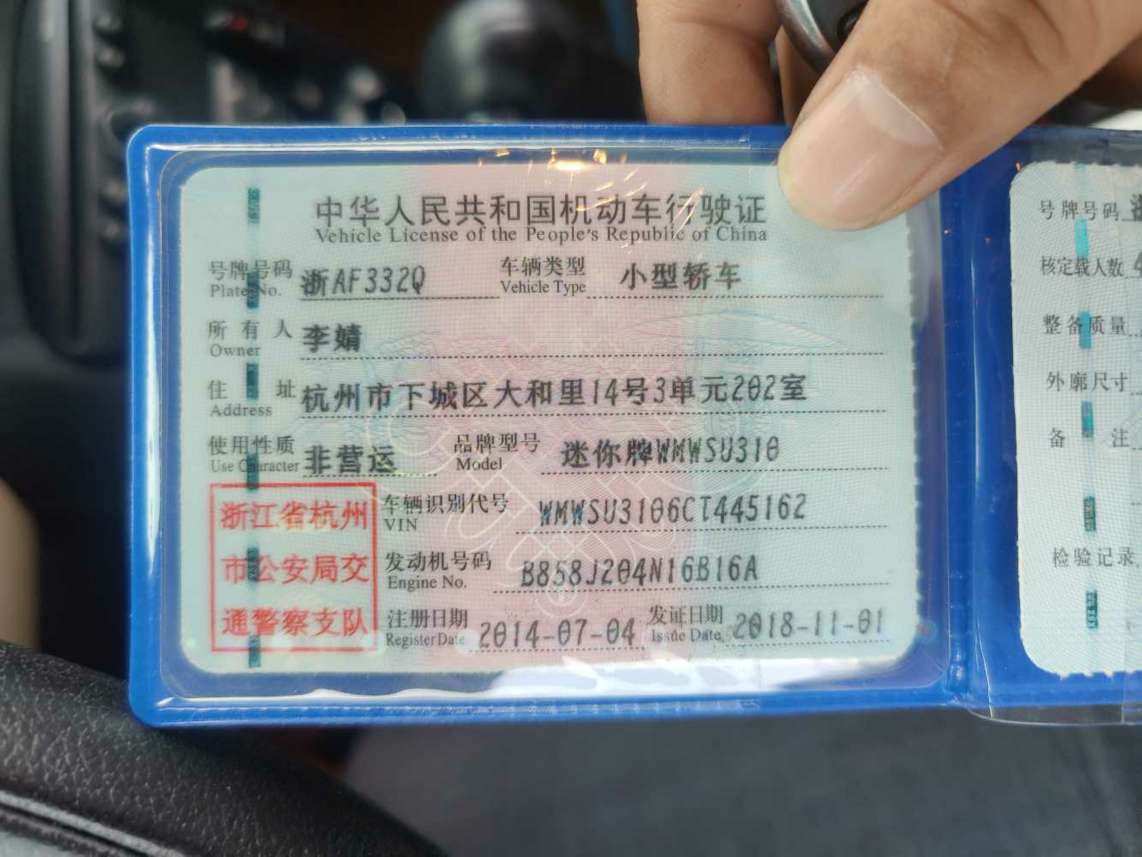 中华人民共和国机动车行驶证
Vehicle License of the People's Republic of China
号牌号码 浙AF332Q 车辆类型 小型轿车
Plate No. Vehicle Type
所有人 李婧
Owner
住址 杭州市下城区大和里14号3单元202室
Address
使用性质 非营运 品牌型号 迷你牌WMWSU310
Use Character Model
浙江省杭州
市公安局交
通警察支队
车辆识别代号 WMWSU3106CT445162
VIN
发动机号码 B858J204N16B16A
Engine No.
注册日期 2014-07-04 发证日期 2018-11-01
Register Date Issue Date
号牌号码
核定载人数
整备质量
外廓尺寸
备注
检验记录